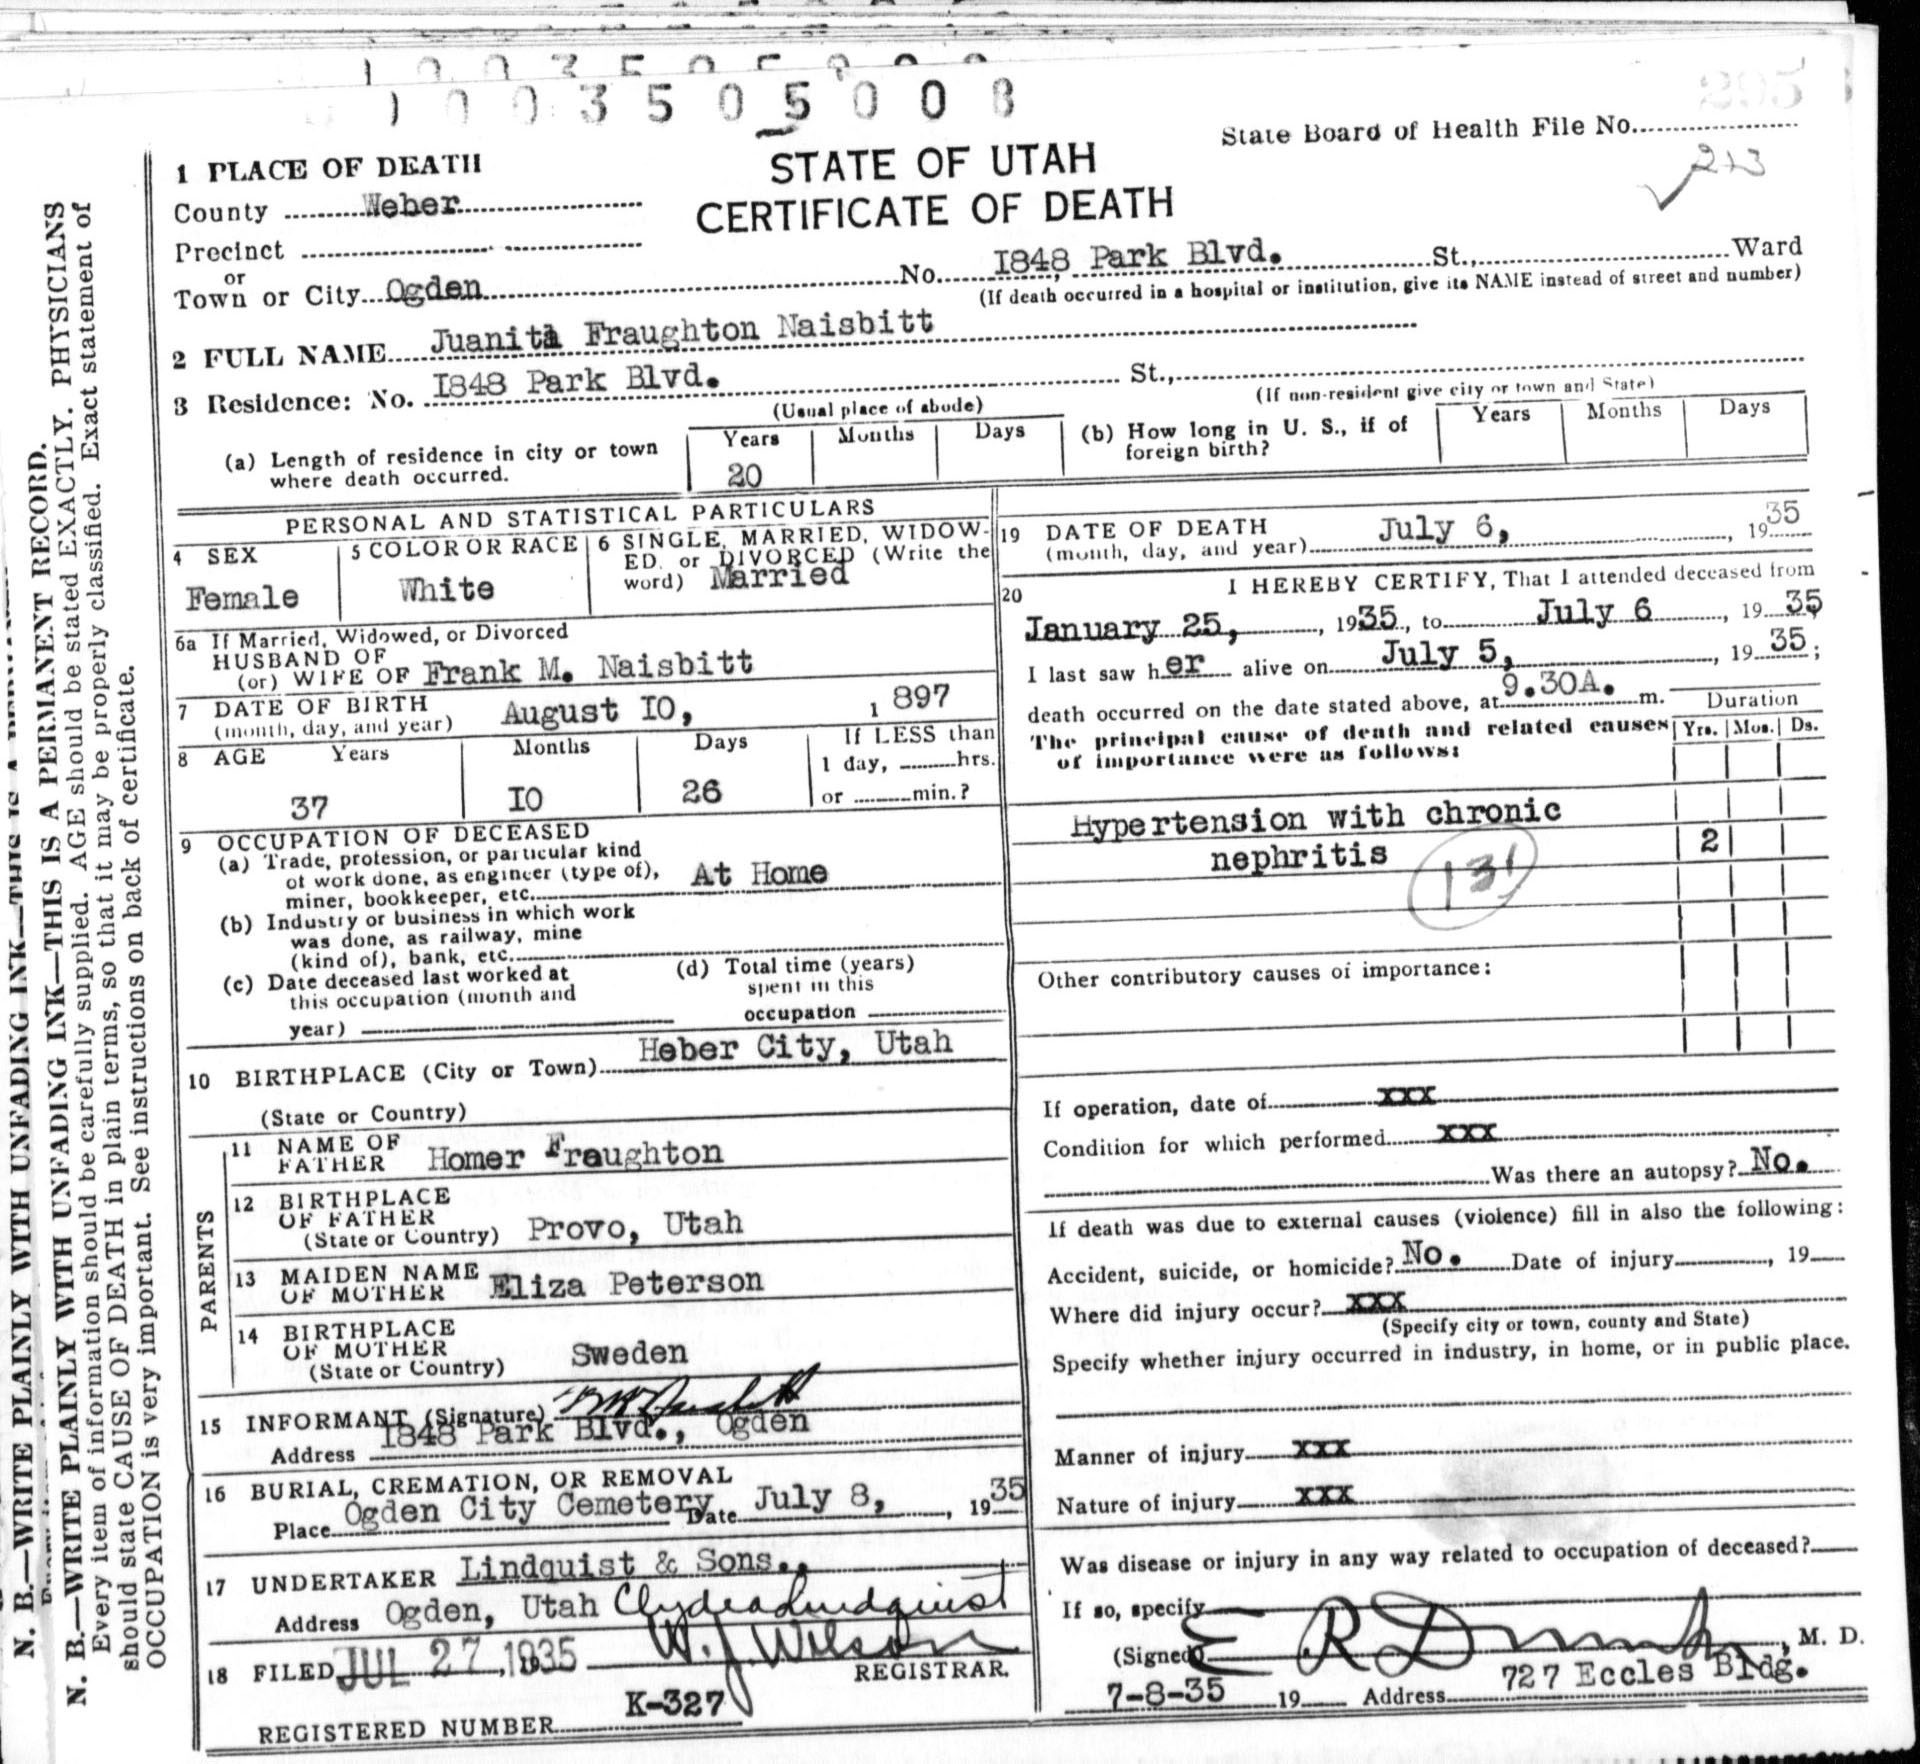 1003505008
295
State Board of Health File No.
213
STATE OF UTAH
CERTIFICATE OF DEATH
1 PLACE OF DEATH
County Weber
Precinct
or
Town or City Ogden No. I848 Park Blvd. St., Ward
(If death occurred in a hospital or institution, give its NAME instead of street and number)
2 FULL NAME Juanita Fraughton Naisbitt
3 Residence: No. I848 Park Blvd. St.,
(Usual place of abode)
(If non-resident give city or town and State)
(a) Length of residence in city or town where death occurred.
Years Months Days
20
(b) How long in U. S., if of foreign birth?
Years Months Days
PERSONAL AND STATISTICAL PARTICULARS
4 SEX
Female
5 COLOR OR RACE
White
6 SINGLE, MARRIED, WIDOW-
ED. or DIVORCED (Write the
word) Married
6a If Married, Widowed, or Divorced
HUSBAND OF
(or) WIFE OF Frank M. Naisbitt
7 DATE OF BIRTH
(month, day, and year) August IO, 1 897
8 AGE Years Months Days If LESS than
1 day, hrs.
or min.?
37 IO 26
9 OCCUPATION OF DECEASED
(a) Trade, profession, or particular kind
of work done, as engineer (type of),
miner, bookkeeper, etc. At Home
(b) Industry or business in which work
was done, as railway, mine
(kind of), bank, etc.
(c) Date deceased last worked at
this occupation (month and
year)
(d) Total time (years)
spent in this
occupation
10 BIRTHPLACE (City or Town) Heber City, Utah
(State or Country)
PARENTS
11 NAME OF
FATHER Homer Fraughton
12 BIRTHPLACE
OF FATHER
(State or Country) Provo, Utah
13 MAIDEN NAME
OF MOTHER Eliza Peterson
14 BIRTHPLACE
OF MOTHER
(State or Country) Sweden
15 INFORMANT (Signature)
Address I848 Park Blvd., Ogden
16 BURIAL, CREMATION, OR REMOVAL
Place Ogden City Cemetery Date July 8, , 1935
17 UNDERTAKER Lindquist & Sons.,
Address Ogden, Utah Clyde Lindquist
18 FILED JUL 27 1935 W. J. Wilson
REGISTRAR.
REGISTERED NUMBER K-327
19 DATE OF DEATH
(month, day, and year) July 6, , 1935
20 I HEREBY CERTIFY, That I attended deceased from
January 25, , 1935, to July 6 , 1935
I last saw her alive on July 5, , 1935;
death occurred on the date stated above, at 9.30A. m.
The principal cause of death and related causes
of importance were as follows:
Duration
Yrs. Mos. Ds.
Hypertension with chronic
nephritis 2
131
Other contributory causes of importance:
If operation, date of xxx
Condition for which performed xxx
Was there an autopsy? No.
If death was due to external causes (violence) fill in also the following:
Accident, suicide, or homicide? No. Date of injury , 19
Where did injury occur? xxx
(Specify city or town, county and State)
Specify whether injury occurred in industry, in home, or in public place.
Manner of injury xxx
Nature of injury xxx
Was disease or injury in any way related to occupation of deceased?
If so, specify
(Signed) E R , M. D.
7-8-35 19 Address 727 Eccles Bldg.
N. B.—WRITE PLAINLY WITH UNFADING INK—THIS IS A
N. B.—WRITE PLAINLY WITH UNFADING INK—THIS IS A PERMANENT RECORD.
Every item of information should be carefully supplied. AGE should be stated EXACTLY. PHYSICIANS
should state CAUSE OF DEATH in plain terms, so that it may be properly classified. Exact statement of
OCCUPATION is very important. See instructions on back of certificate.